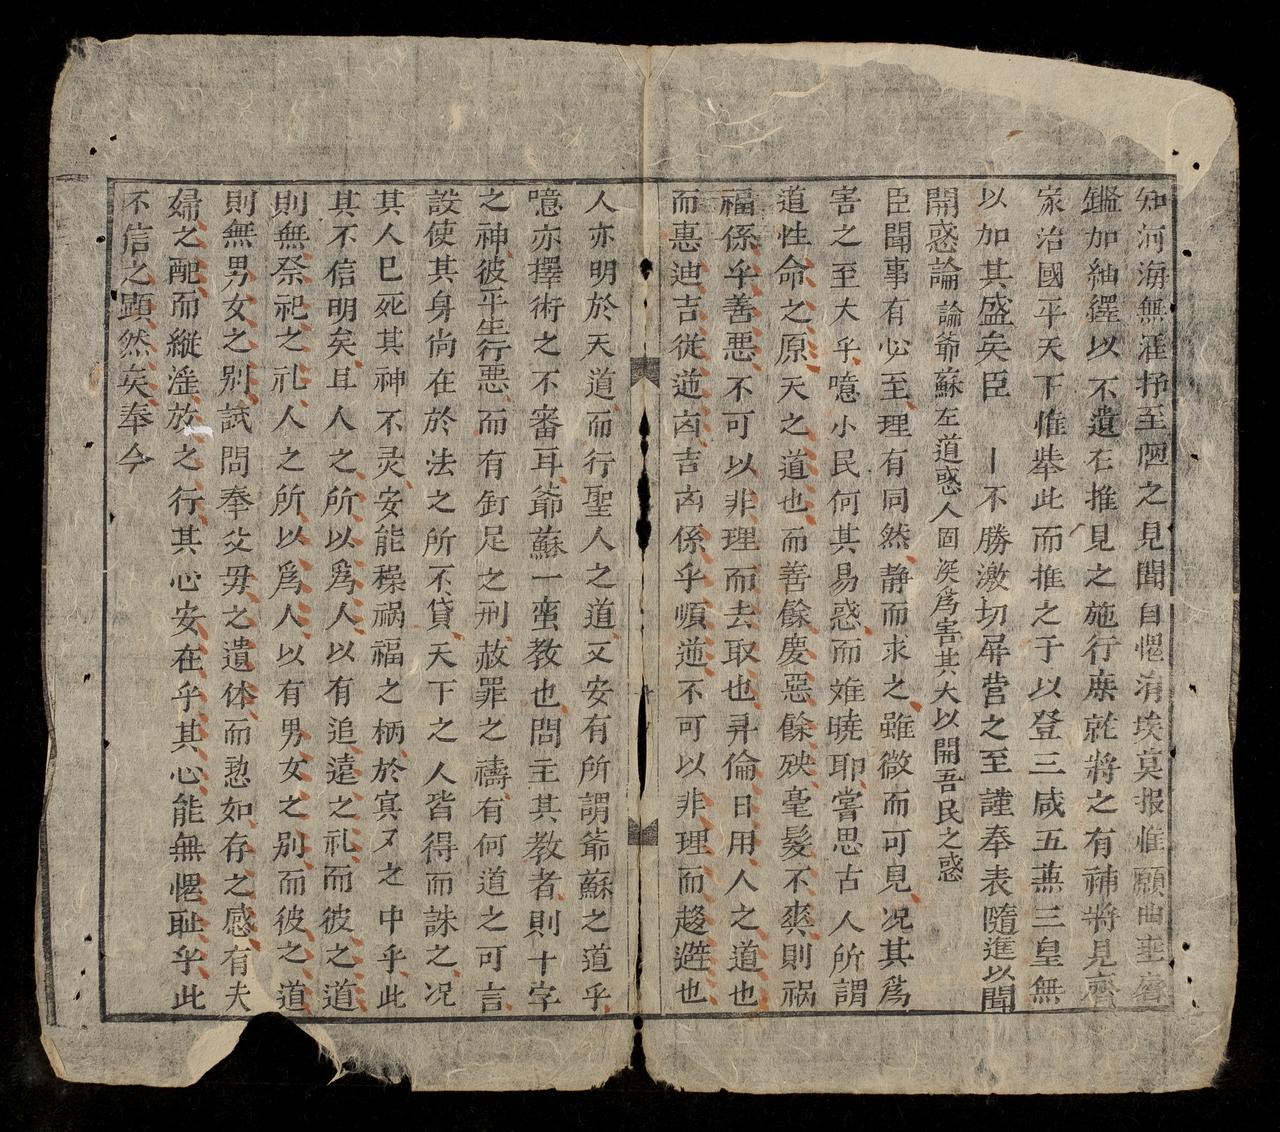 知河海無涯抒至陋之見聞自愧涓埃莫报惟願曲垂磨
鑑加紬繹以不遺在推見之施行庶就將之有補將見齊
家治國平天下惟舉此而推之于以登三咸五燕三皇無
以加其盛矣臣丨不勝激切屏营之至謹奉表隨進以聞
開惑論 論爺蘇左道惑人固深爲害其大以開吾民之惑
臣聞事有必至理有同然静而求之雖微而可見况其爲
害之至大乎噫小民何其易惑而难曉耶嘗思古人所謂
道性命之原天之道也而善餘慶惡餘殃毫髮不爽則禍
福係乎善悪不可以非理而去取也彛倫日用人之道也
而惠迪吉從逆凶吉凶係乎順逆不可以非理而趍避也
人亦明於天道而行聖人之道又安有所謂爺蘇之道乎
噫亦擇術之不審耳爺蘇一蛮教也問主其教者則十字
之神彼平生行悪而有釘足之刑赦罪之禱有何道之可言
設使其身尚在於法之所不貸天下之人皆得而誅之况
其人已死其神不灵安能操祸福之柄於冥冥之中乎此
其不信明矣且人之所以爲人以有追遠之礼而彼之道
則無祭祀之礼人之所以爲人以有男女之别而彼之道
則無男女之别試問奉父毋之遺体而恝如存之感有夫
婦之配而縦淫放之行其心安在乎其心能無愧耻乎此
不信之顕然矣奉今